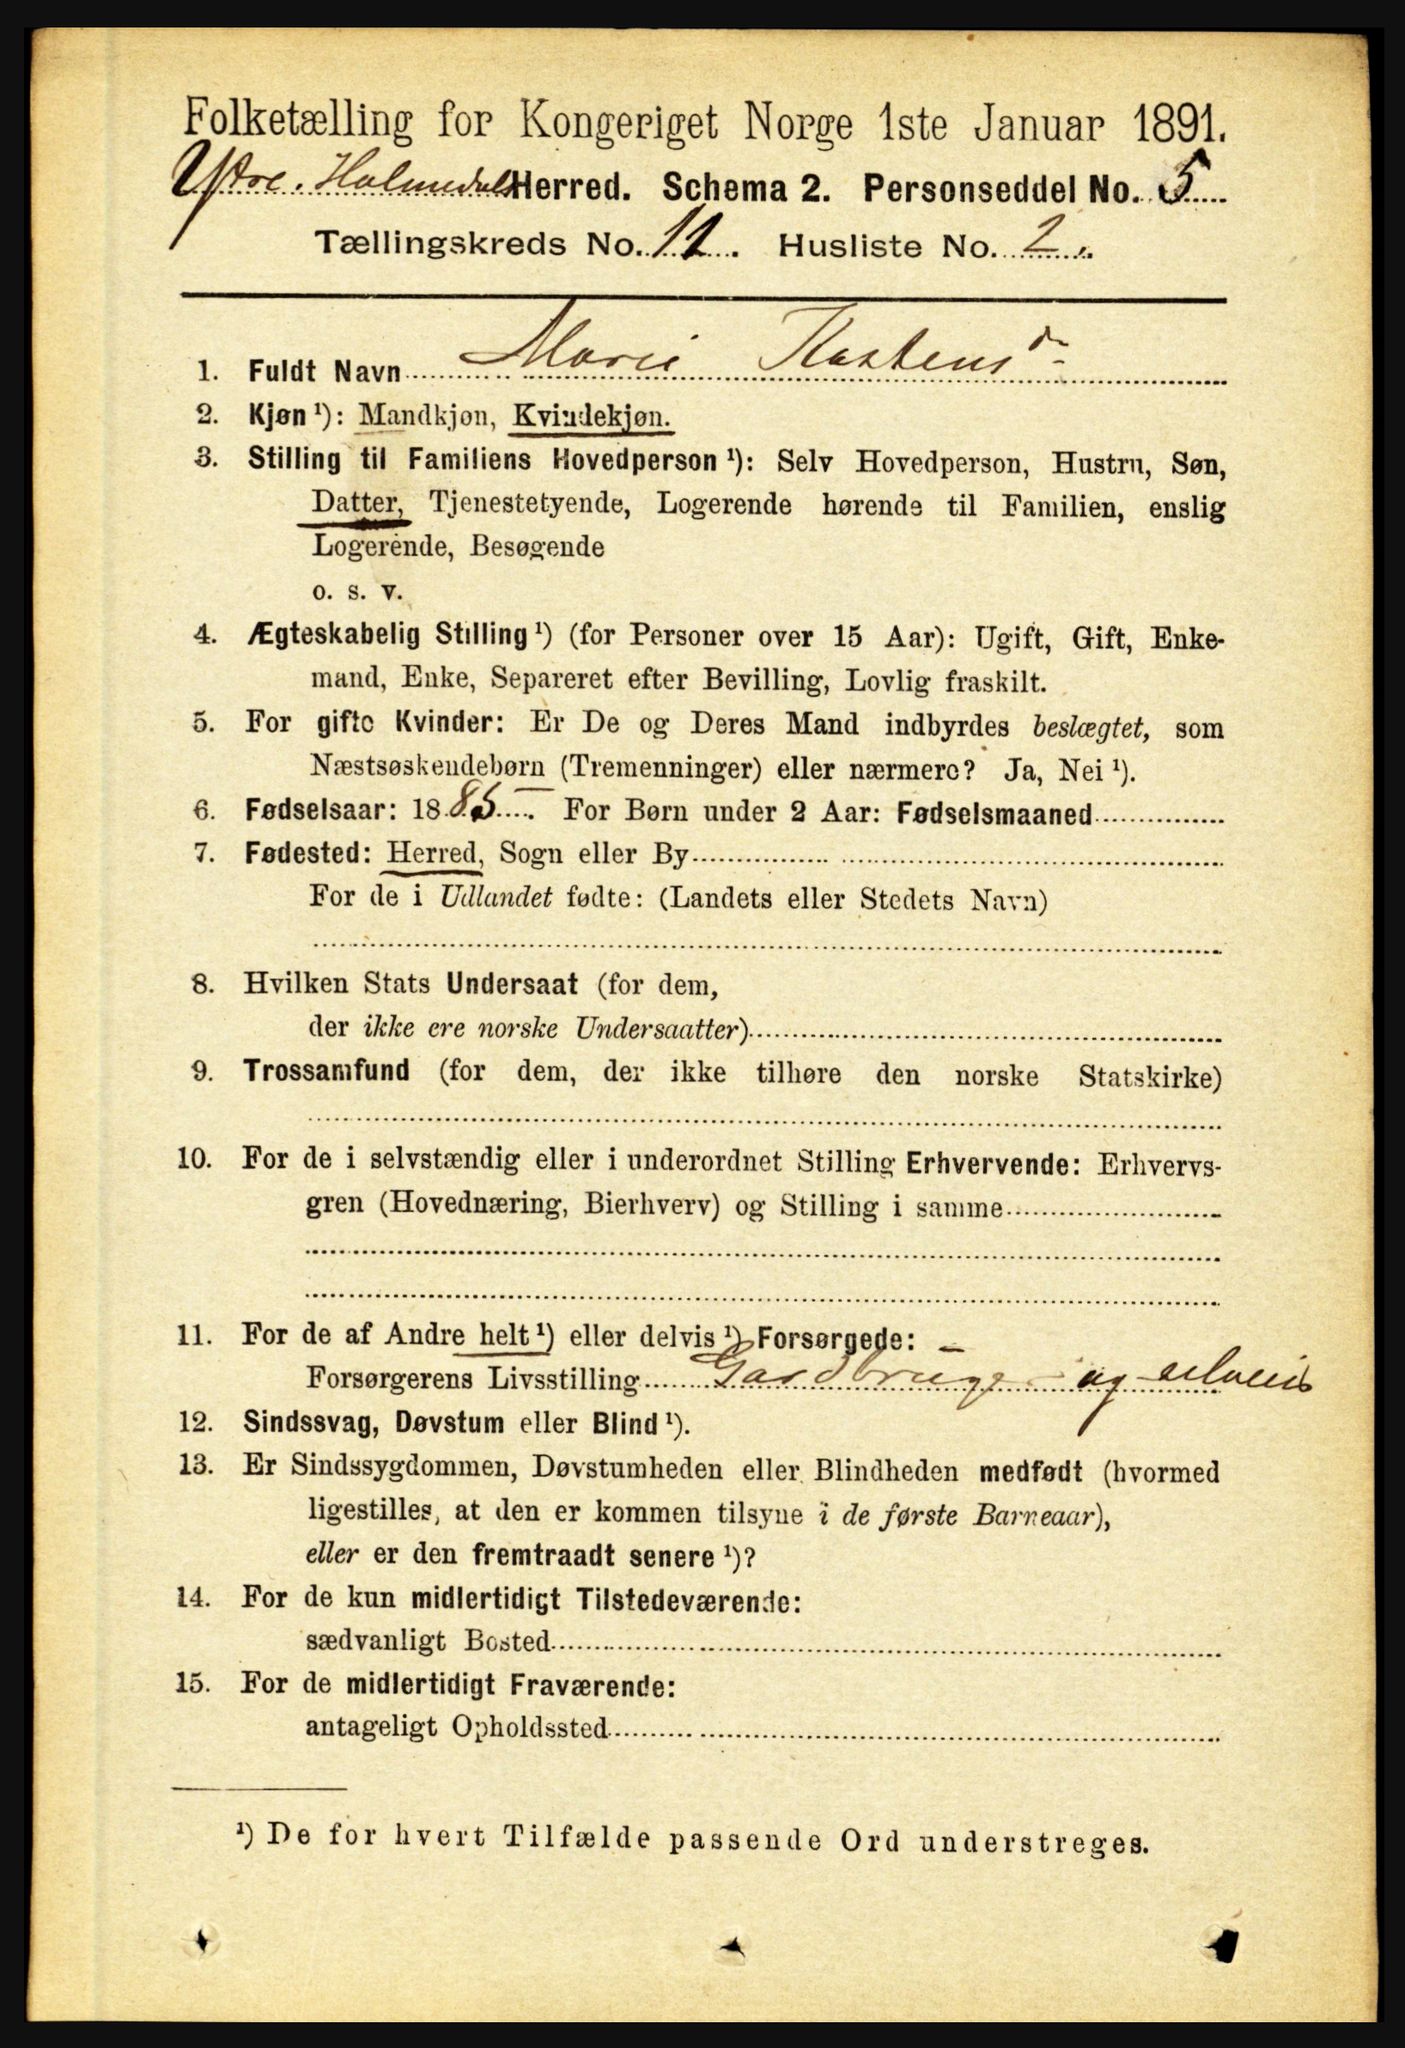 Folketælling for Kongeriget Norge 1ste Januar 1891.
Ytre Holmedals Herred. Schema 2. Personseddel No. 5
Tællingskreds No. 11. Husliste No. 2.
1. Fuldt Navn Marie Rastensdr
2. Kjøn ¹): Mandkjøn, Kvindekjøn.
3. Stilling til Familiens Hovedperson ¹): Selv Hovedperson, Hustru, Søn,
Datter, Tjenestetyende, Logerende hørende til Familien, enslig
Logerende, Besøgende
o. s. v.
4. Ægteskabelig Stilling ¹) (for Personer over 15 Aar): Ugift, Gift, Enke-
mand, Enke, Separeret efter Bevilling, Lovlig fraskilt.
5. For gifte Kvinder: Er De og Deres Mand indbyrdes beslægtet, som
Næstsøskendebørn (Tremenninger) eller nærmere? Ja, Nei ¹).
6. Fødselsaar: 1885. For Børn under 2 Aar: Fødselsmaaned
7. Fødested: Herred, Sogn eller By
For de i Udlandet fødte: (Landets eller Stedets Navn)
8. Hvilken Stats Undersaat (for dem,
der ikke ere norske Undersaatter)
9. Trossamfund (for dem, der ikke tilhøre den norske Statskirke)
10. For de i selvstændig eller i underordnet Stilling Erhvervende: Erhvervs-
gren (Hovednæring, Bierhverv) og Stilling i samme
11. For de af Andre helt ¹) eller delvis ¹) Forsørgede: –
Forsørgerens Livsstilling Gardbruge og selveie
12. Sindssvag, Døvstum eller Blind ¹).
13. Er Sindssygdommen, Døvstumheden eller Blindheden medfødt (hvormed
ligestilles, at den er kommen tilsyne i de første Barneaar),
eller er den fremtraadt senere ¹)?
14. For de kun midlertidigt Tilstedeværende:
sædvanligt Bosted
15. For de midlertidigt Fraværende:
antageligt Opholdssted
¹) De for hvert Tilfælde passende Ord understreges.